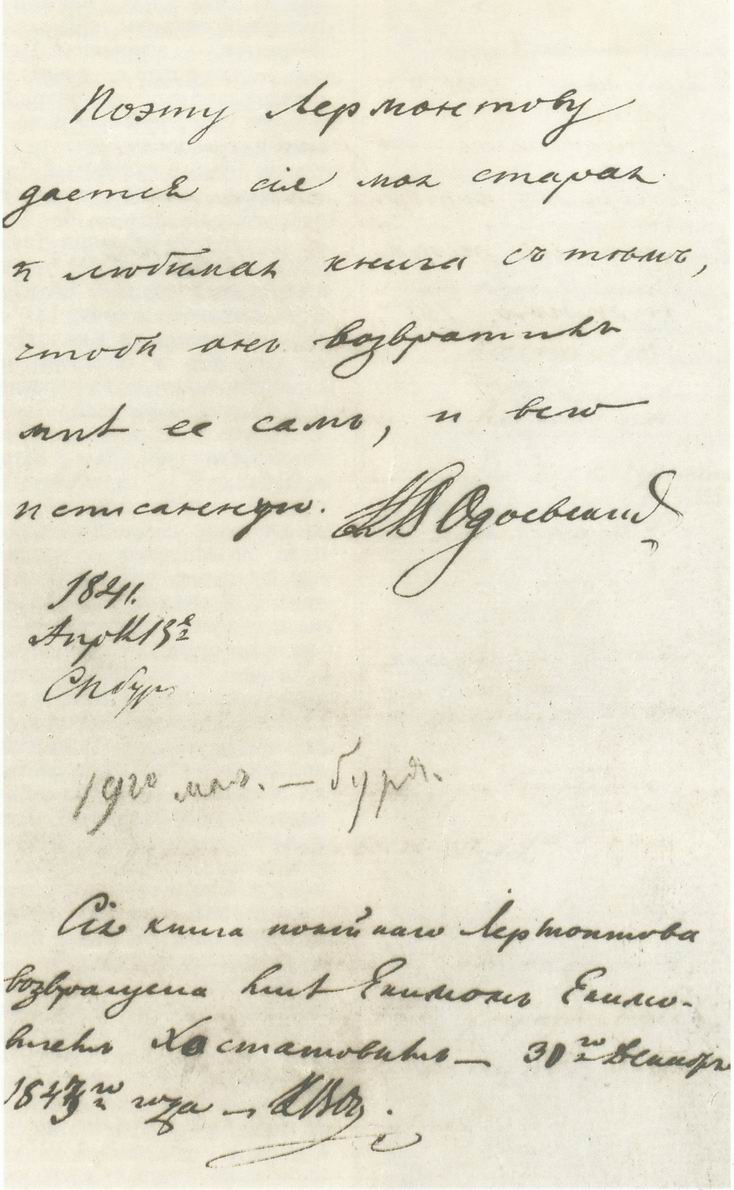 Поэту Лермонтову
дается сія моя старая
и любимая книга съ тѣмъ,
чтобы онъ возвратилъ
мнѣ ее самъ, и всю
исписанную. К В Одоевский
1841.
Апрѣл 13 е
СПбург
19го мая. — буря.
Сія книга покойнаго Лермонтова
возвращена мнѣ Екимомъ Екимо-
вичемъ Хостатовымъ — 30го Декабря
1843го года — К В О.